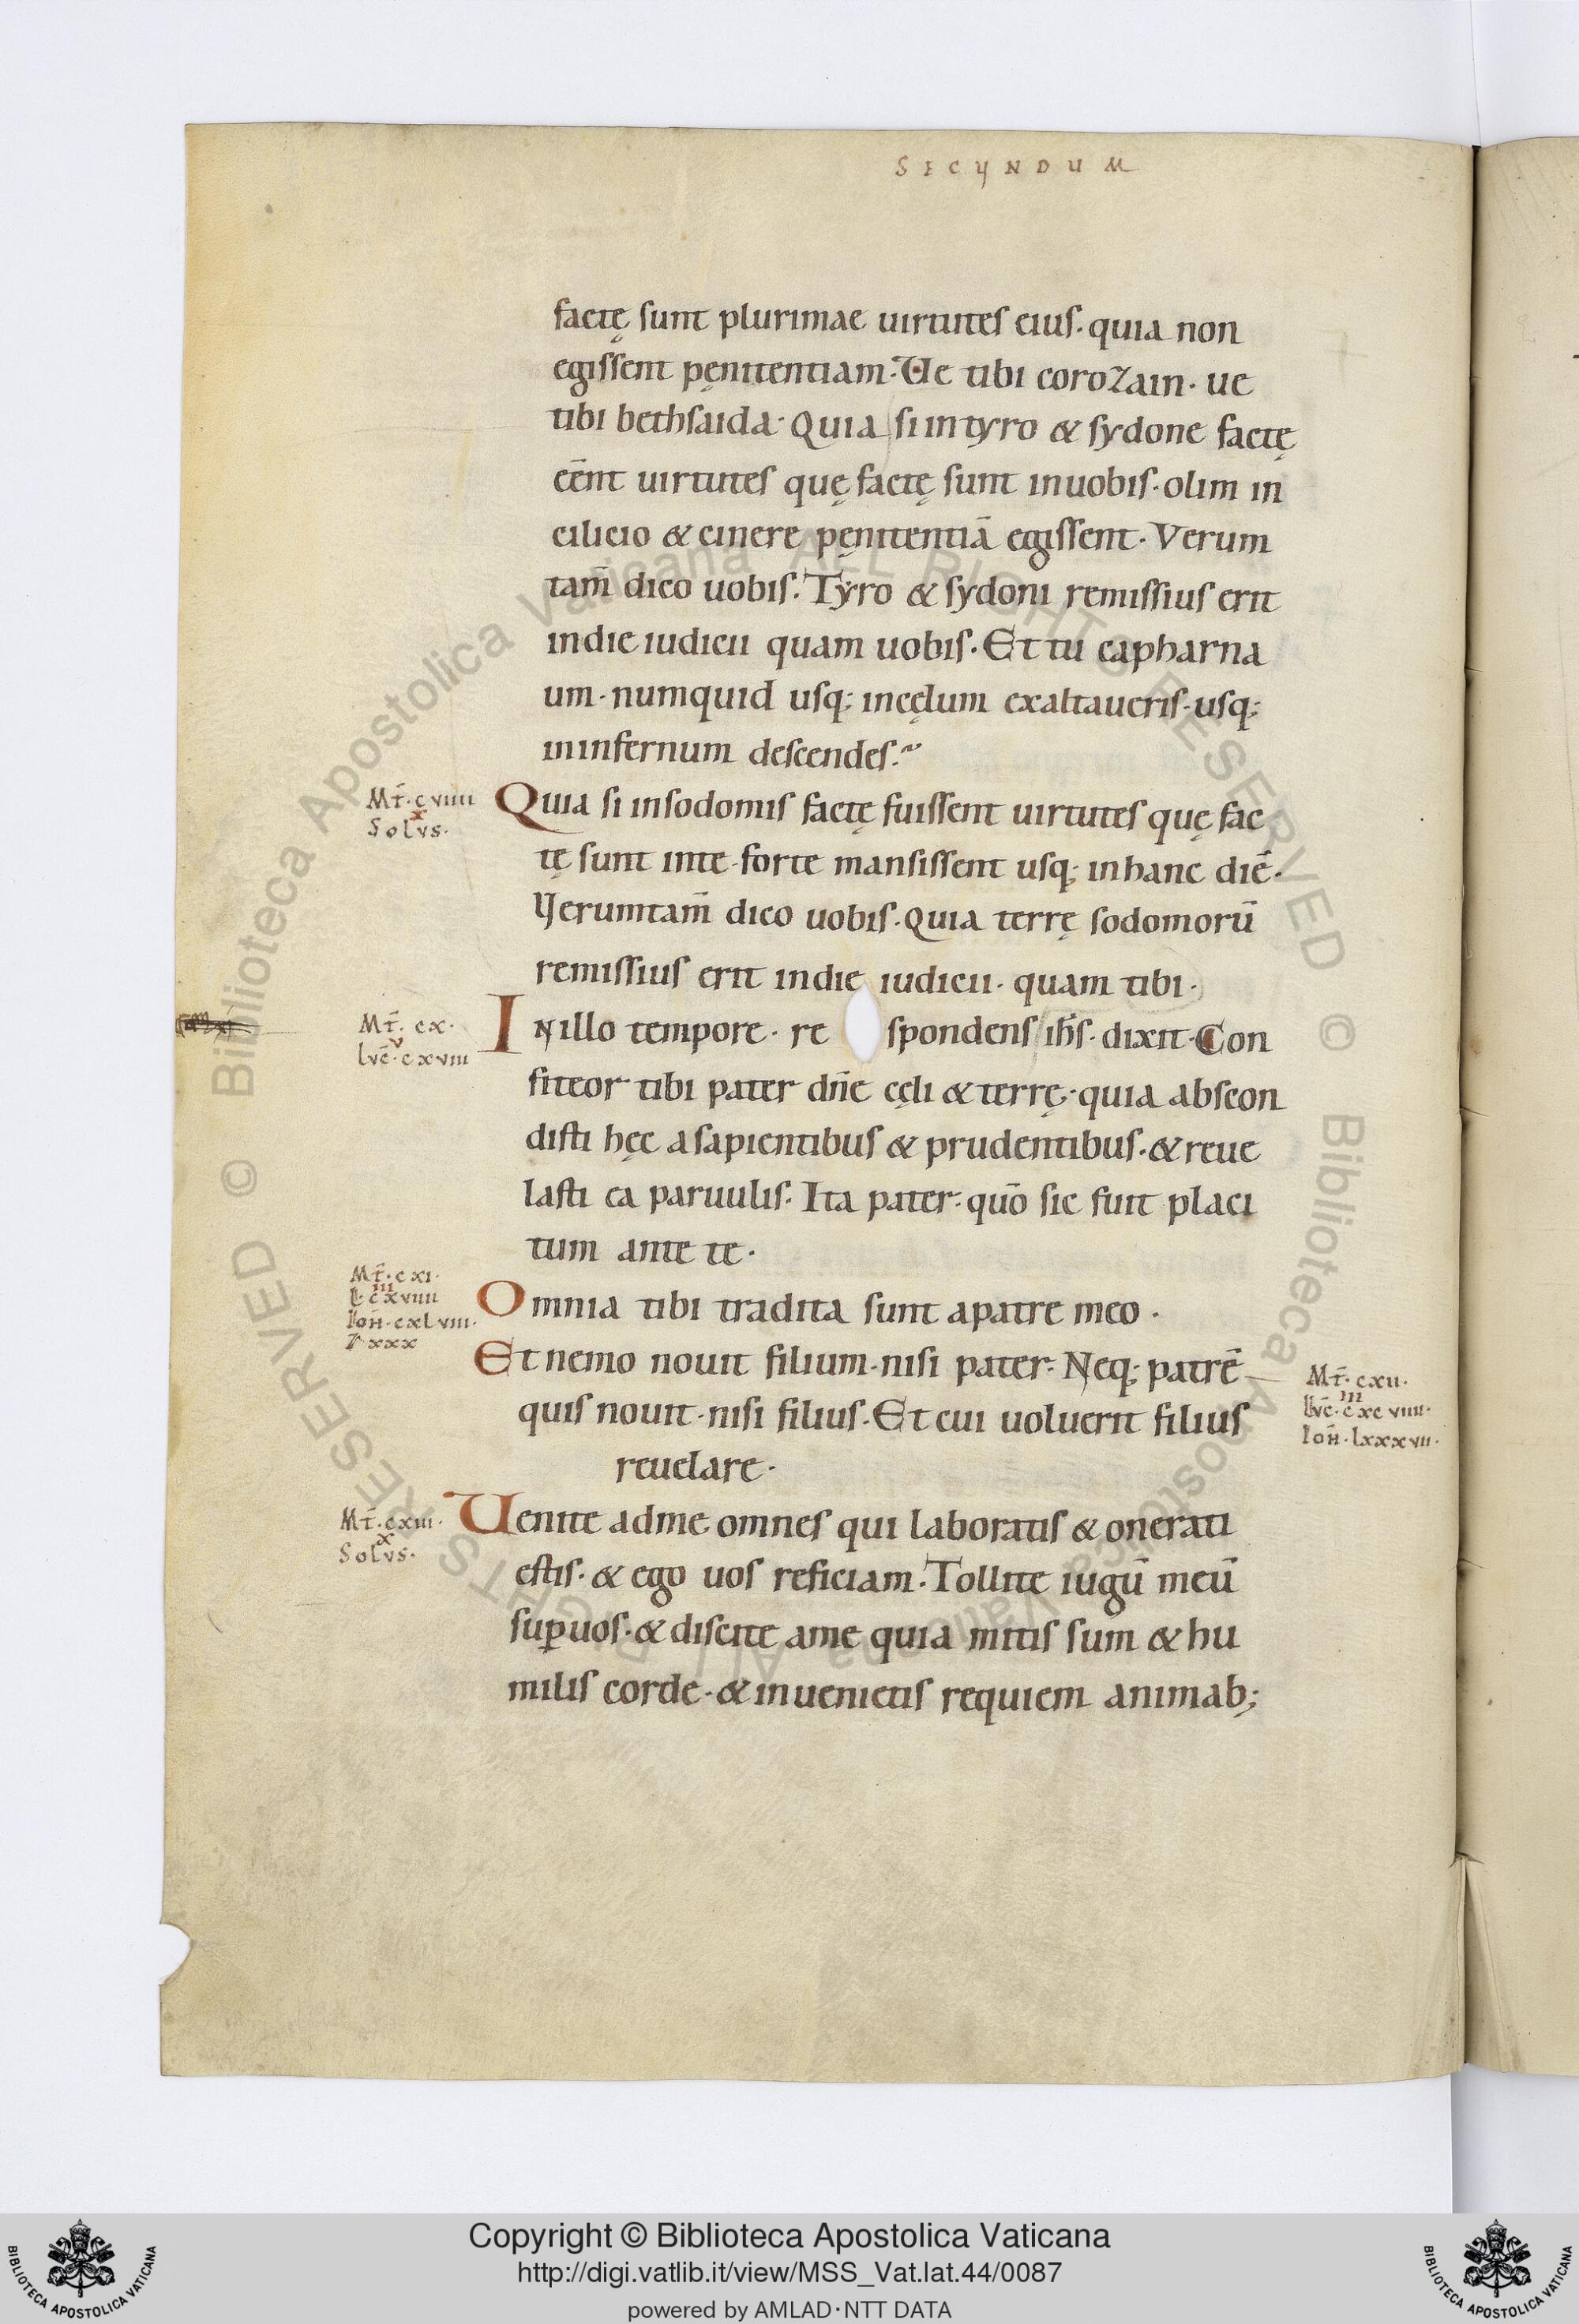 SECUNDUM
factę sunt plurimae uirtutes eius. quia non
egissent pęnitentiam. Ue tibi corozain. ue
tibi bethsaida. Quia si in tyro & sydone factę
eēnt uirtutes quę factę sunt inuobis. olim in
cilicio & cinere pęnitentiā egissent. Verum
tam̄ dico uobis. Tyro & sydoni remissius erit
indie iudicii quam uobis. Et tu capharna
um. numquid usq; incęlum exaltaueris. usq;
ininfernum descendes.
Mt̄. cviiii
x
Solvs.
Quia si insodomis factę fuissent uirtutes quę fac
tę sunt inte. forte mansissent usq; inhanc diē.
Verumtam̄ dico uobis. Quia terrę sodomorū
remissius erit indie iudicii. quam tibi.
Mt̄. cx.
v
lvc̄. cxviii
Inillo tempore. respondens ih̄s. dixit. Con
fiteor tibi pater dn̄e cęli & terrę. quia abscon
disti hęc asapientibus & prudentibus. & reue
lasti ea paruulis. Ita pater. quō sic fuit placi
tum ante te.
Mt̄. cxi.
iii
l. cxviiii
Ioh̄. cxlviii.
7. xxx
Omnia tibi tradita sunt apatre meo.
Et nemo nouit filium. nisi pater. Neq; patrē
quis nouit. nisi filius. Et cui uoluerit filius
reuelare.
Mt̄. cxii.
iii
lvc̄. cxcviiii.
Ioh̄. lxxxvii.
Mt̄. cxiii.
x
Solvs.
Uenite adme omnes qui laboratis & onerati
estis. & ego uos reficiam. Tollite iugū meū
sup̄uos. & discite ame quia mitis sum & hu
milis corde. & inuenietis requiem animab;
Copyright © Biblioteca Apostolica Vaticana
http://digi.vatlib.it/view/MSS_Vat.lat.44/0087
powered by AMLAD·NTT DATA
BIBLIOTECA APOSTOLICA VATICANA
BIBLIOTECA APOSTOLICA VATICANA
© Biblioteca Apostolica Vaticana ALL RIGHTS RESERVED
© Biblioteca Apostolica Vaticana ALL RIGHTS RESERVED